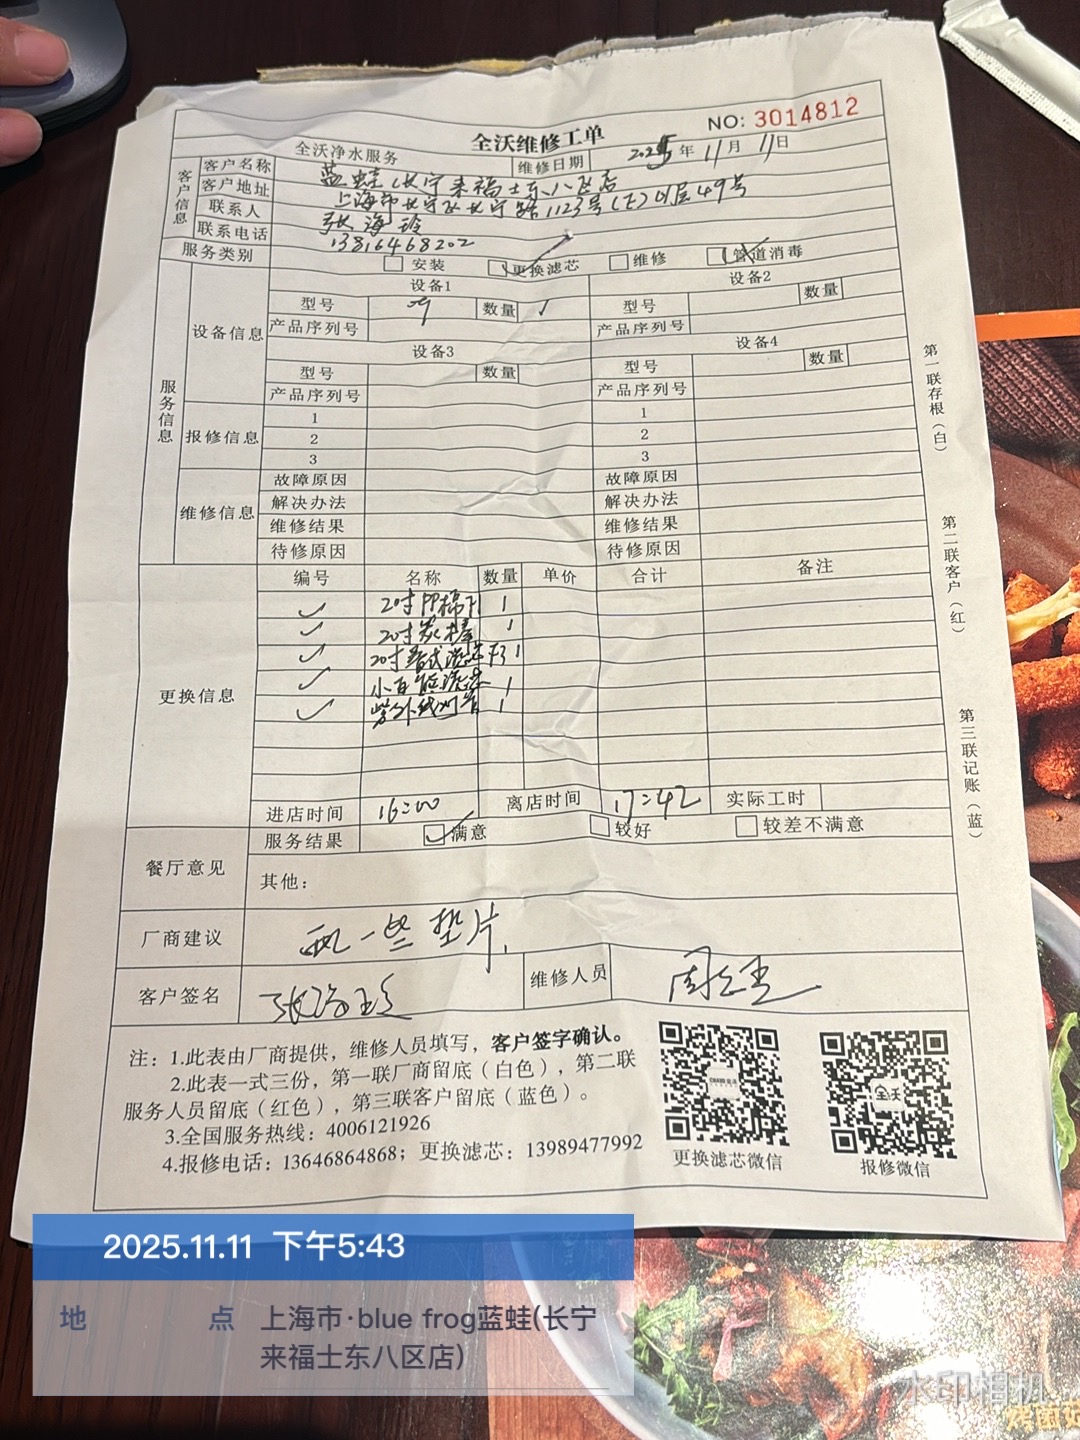 NO: 3014812
全沃维修工单
全沃净水服务 维修日期 2025年11月11日
客户信息
客户名称 蓝蛙(长宁来福士东八区店
客户地址 上海市长宁区长宁路1123号(E)01层49号
联系人 张海玲
联系电话 13816468202
服务类别 安装 更换滤芯 维修 管道消毒
服务信息
设备信息
设备1 设备2
型号 数量 1 型号 数量
产品序列号 产品序列号
设备3 设备4
型号 数量 型号 数量
产品序列号 产品序列号
报修信息
1 1
2 2
3 3
维修信息
故障原因 故障原因
解决办法 解决办法
维修结果 维修结果
待修原因 待修原因
更换信息
编号 名称 数量 单价 合计 备注
✓ 20寸PP棉 1
✓ 20寸炭棒 1
✓ 20寸 滤芯 1
✓ 小白 滤芯 1
✓ 紫外线灯管 1
进店时间 16:00 离店时间 17:42 实际工时
服务结果 满意 较好 较差不满意
餐厅意见 其他：
厂商建议 一些垫片.
客户签名 张海玲 维修人员
注：1.此表由厂商提供，维修人员填写，客户签字确认。
2.此表一式三份，第一联厂商留底（白色），第二联
服务人员留底（红色），第三联客户留底（蓝色）。
3.全国服务热线：4006121926
4.报修电话：13646864868；更换滤芯：13989477992
更换滤芯微信
全沃
报修微信
第一联存根（白）
第二联客户（红）
第三联记账（蓝）
2025.11.11 下午5:43
地点 上海市·blue frog蓝蛙(长宁
来福士东八区店)
水印相机